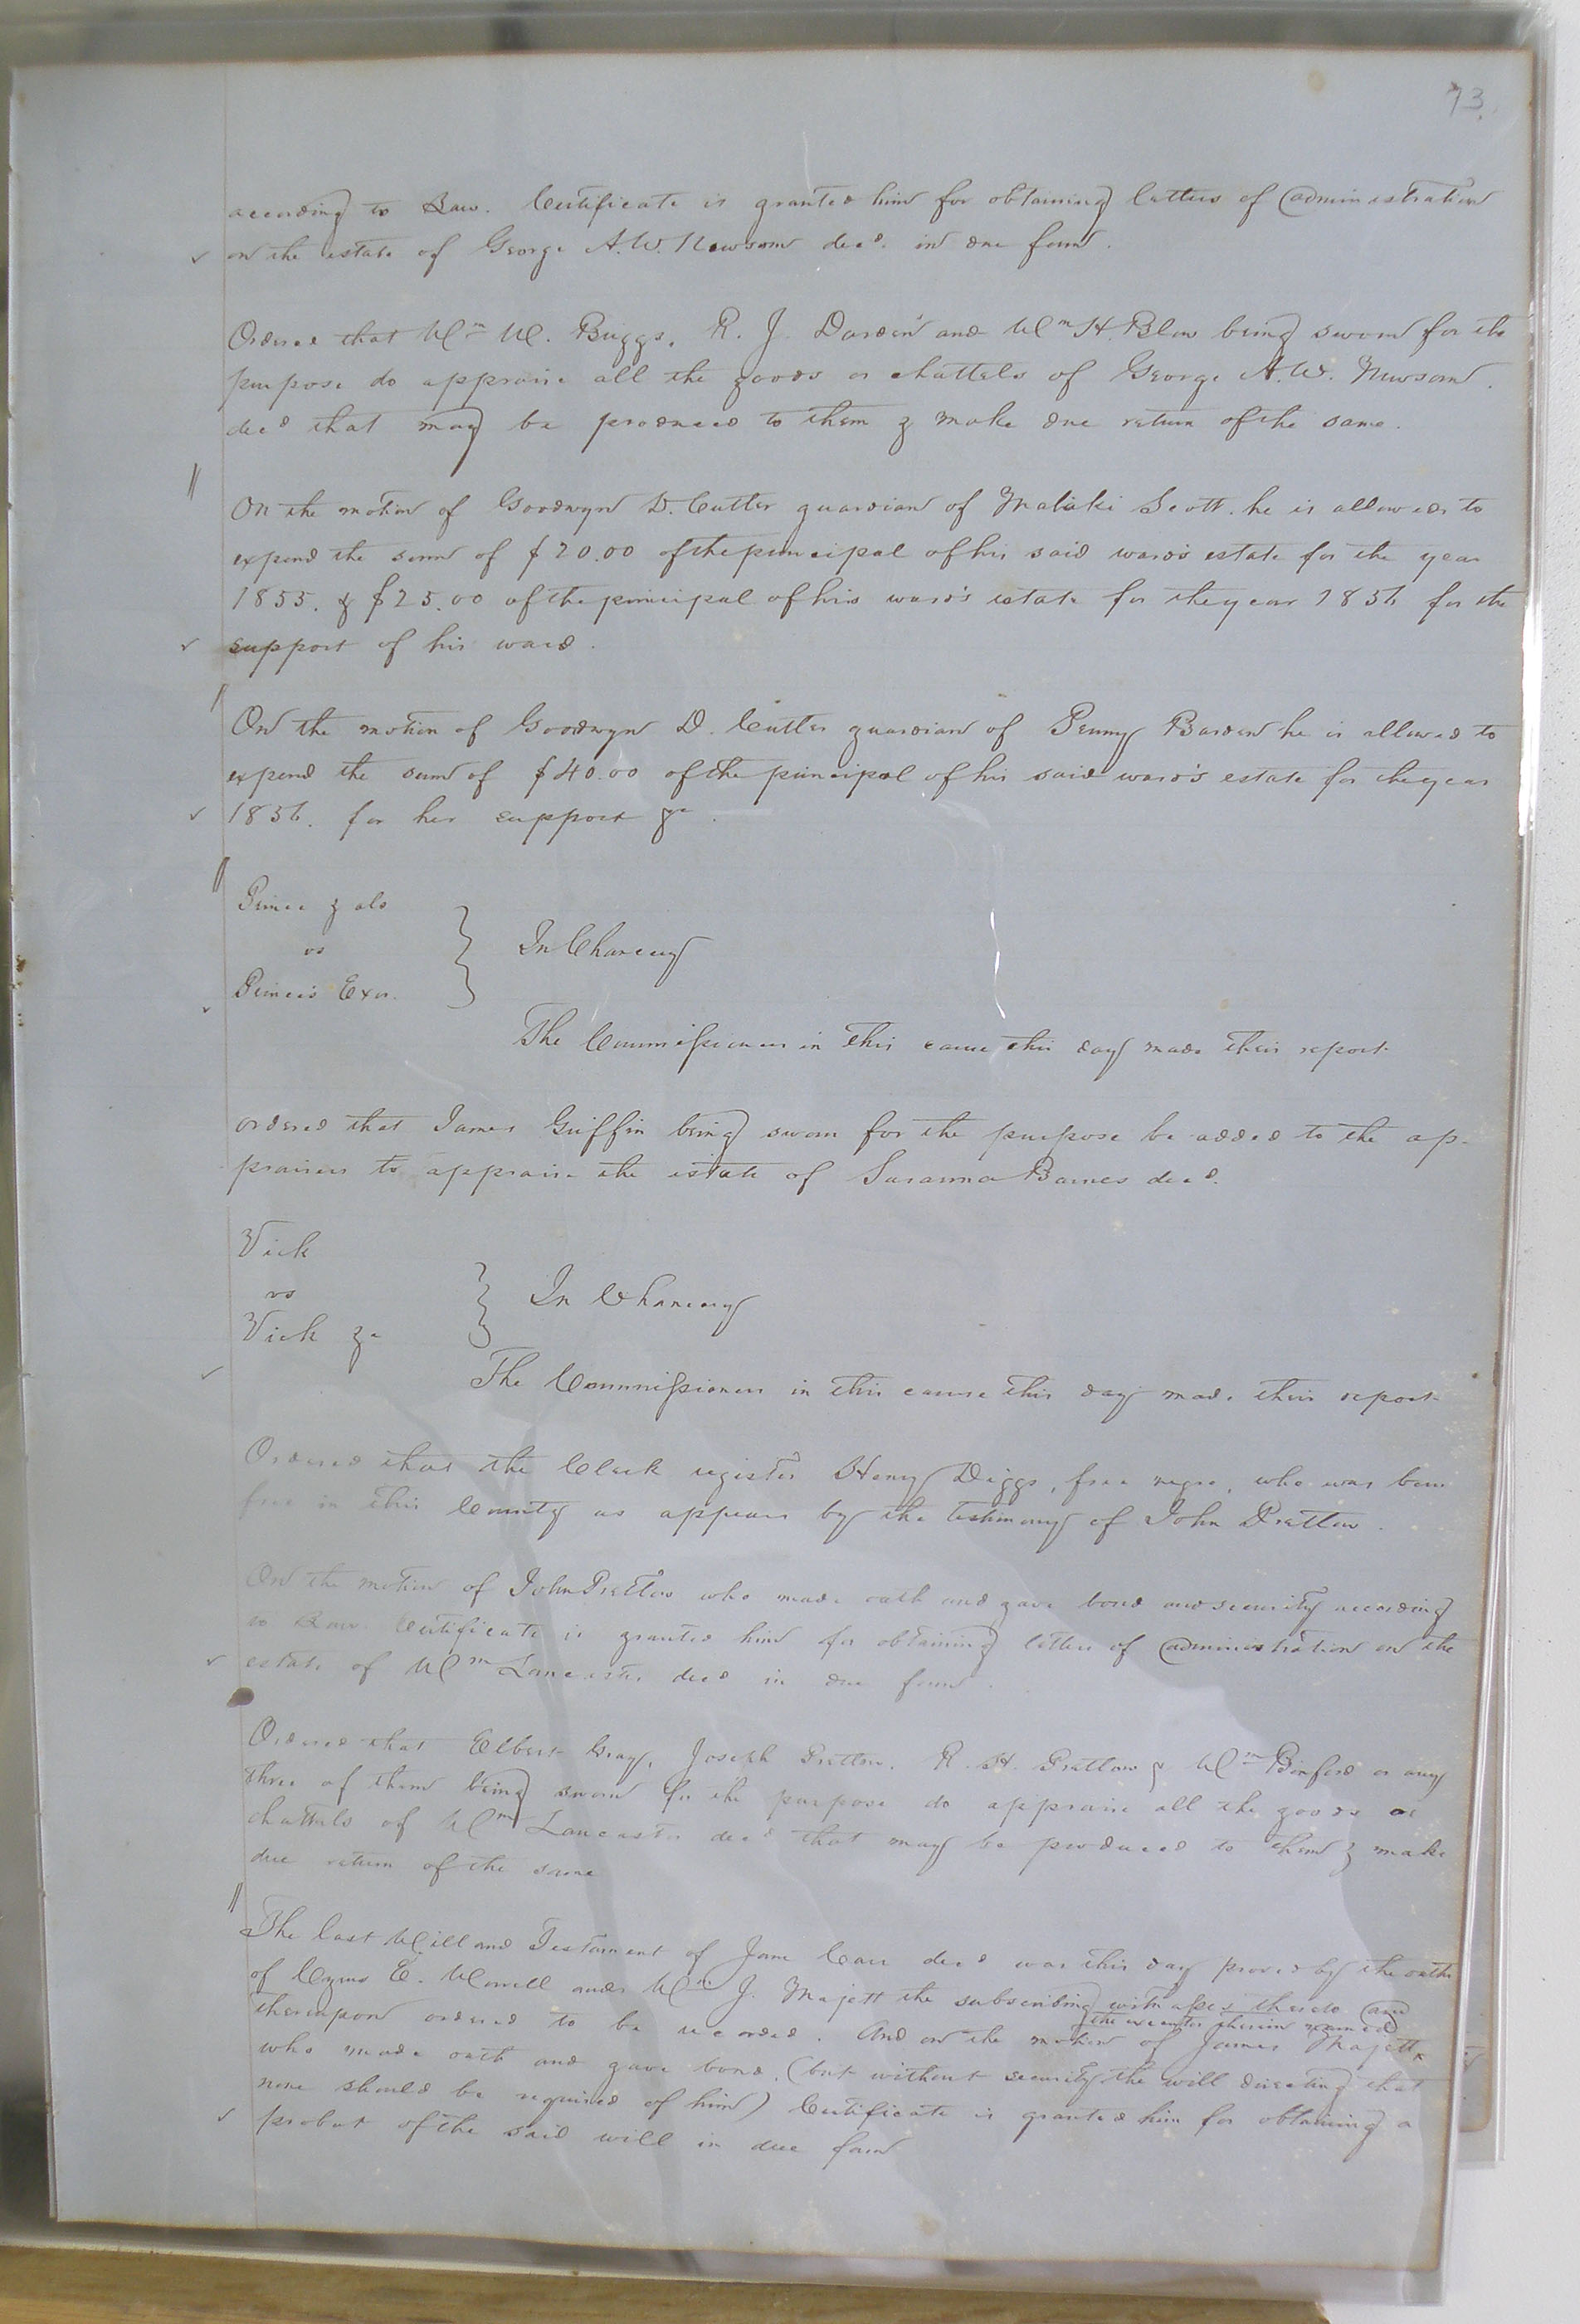 73.
according to Law. Certificate is granted him for obtaining letters of administration
on the estate of George A. W. Newsom decd. in due form.
Ordered that Wm W. Buggs, R. J. Darden and Wm H. Blow being sworn for the
purpose do appraise all the goods or chattels of George A. W. Newsom.
decd that may be produced to them & make due return of the same.
On the motion of Goodwyn D. Cutler guardian of Malaki Scott. he is allowed to
expend the sum of $20.00 of the principal of his said ward's estate for the year
1855. & $25.00 of the principal of his ward's estate for the year 1856 for the
support of his ward.
On the motion of Goodwyn D. Cutler guardian of Penny Barden he is allowed to
expend the sum of $40.00 of the principal of his said ward's estate for the year
1856. for her support &c.
Prince & als
vs
Prince's Exor.
In Chancery
The Commissioners in this cause this day made their report
ordered that James Griffin being sworn for the purpose be added to the ap-
praisers to appraise the estate of Susanna Barnes decd.
Vick
vs
Vick &c
In Chancery
The Commissioners in this cause this day made their report
Ordered that the Clerk register Henry Diggs, free negro, who was born
free in this County as appears by the testimony of John Pretlow.
On the motion of John Pretlow who made oath and gave bond and security according
to Law Certificate is granted him for obtaining letters of administration on the
estate of Wm Lancaster decd in due form.
Ordered that Elbert Gray, Joseph Pretlow. R. H. Pretlow & Wm Binford or any
three of them being sworn for the purpose do appraise all the goods or
chattels of Wm Lancaster decd that may be produced to them & make
due return of the same
The last Will and Testament of Jane Carr decd was this day proved by the oaths
of Cyrus E. and Wm J. Majett the subscribing witnesses thereto and
thereupon ordered to be recorded. And on the motion of James Majett
the executor therein named
who made oath and gave bond, (but without security the will directing that
none should be required of him) Certificate is granted him for obtaining a
probat of the said will in due form